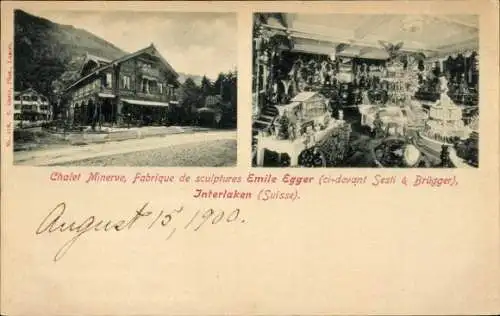 Chalet Minerve, Fabrique de sculptures Emile Egger (ci-devant Sesti & Brügger),
Interlaken (Suisse).
August 15, 1900.